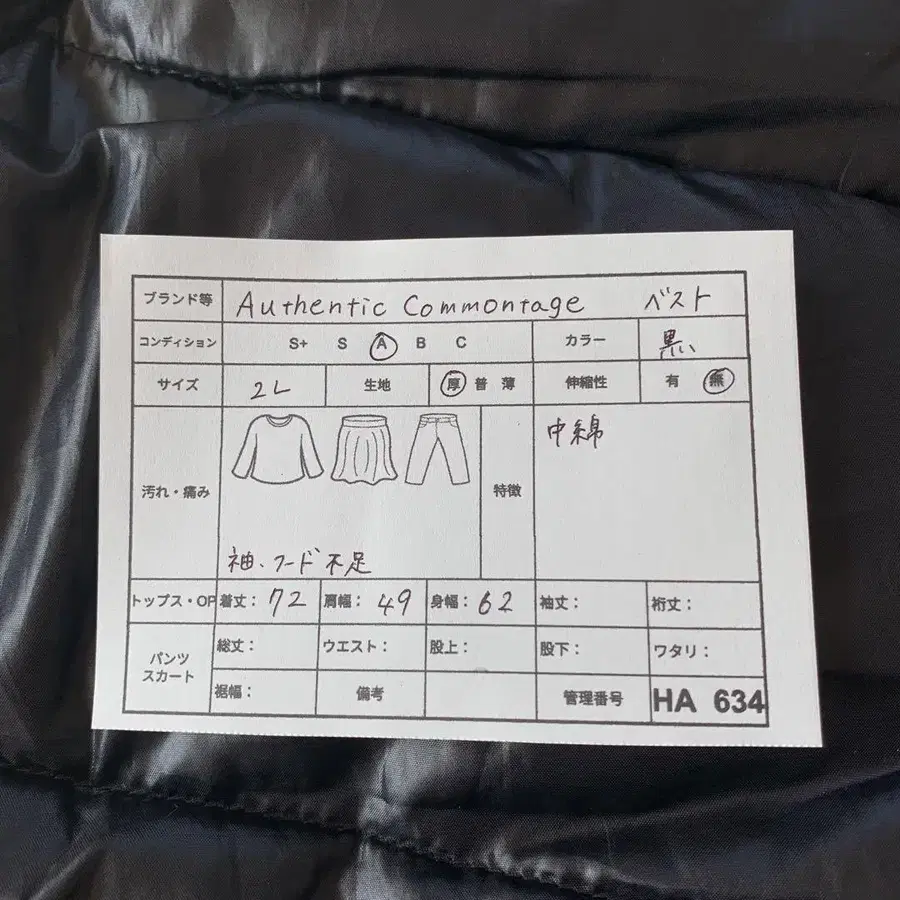 ブランド等 Authentic Commontage ベスト
コンディション S+ S A B C カラー 黒
サイズ 2L 生地 厚 普 薄 伸縮性 有 無
汚れ・痛み 特徴 中綿
袖、フード不足
トップス・OP 着丈: 72 肩幅: 49 身幅: 62 袖丈: 裄丈:
パンツ スカート 総丈: ウエスト: 股上: 股下: ワタリ:
裾幅: 備考 管理番号 HA 634